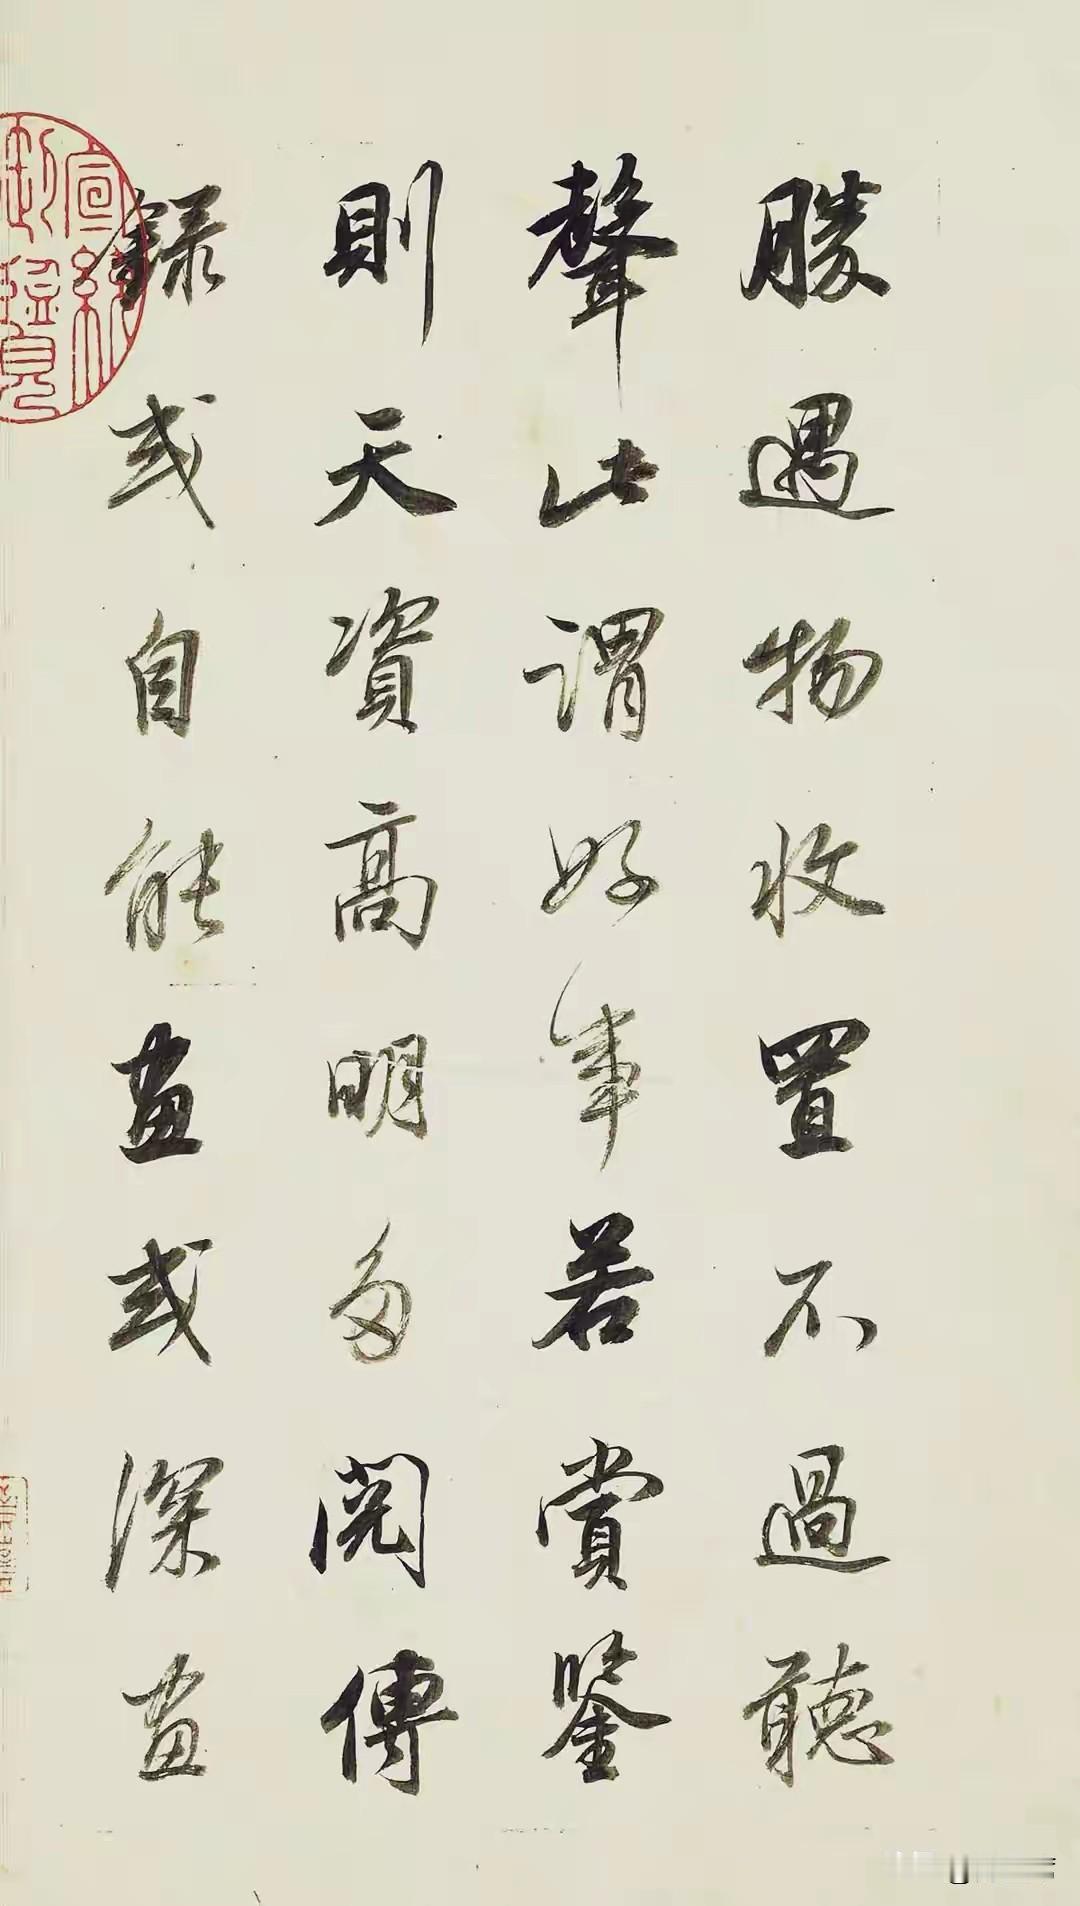 勝遇物收置不過聽
聲此謂好事若賞鑒
則天資高明多閱傳
録或自能畫或深畫
宣統御覽